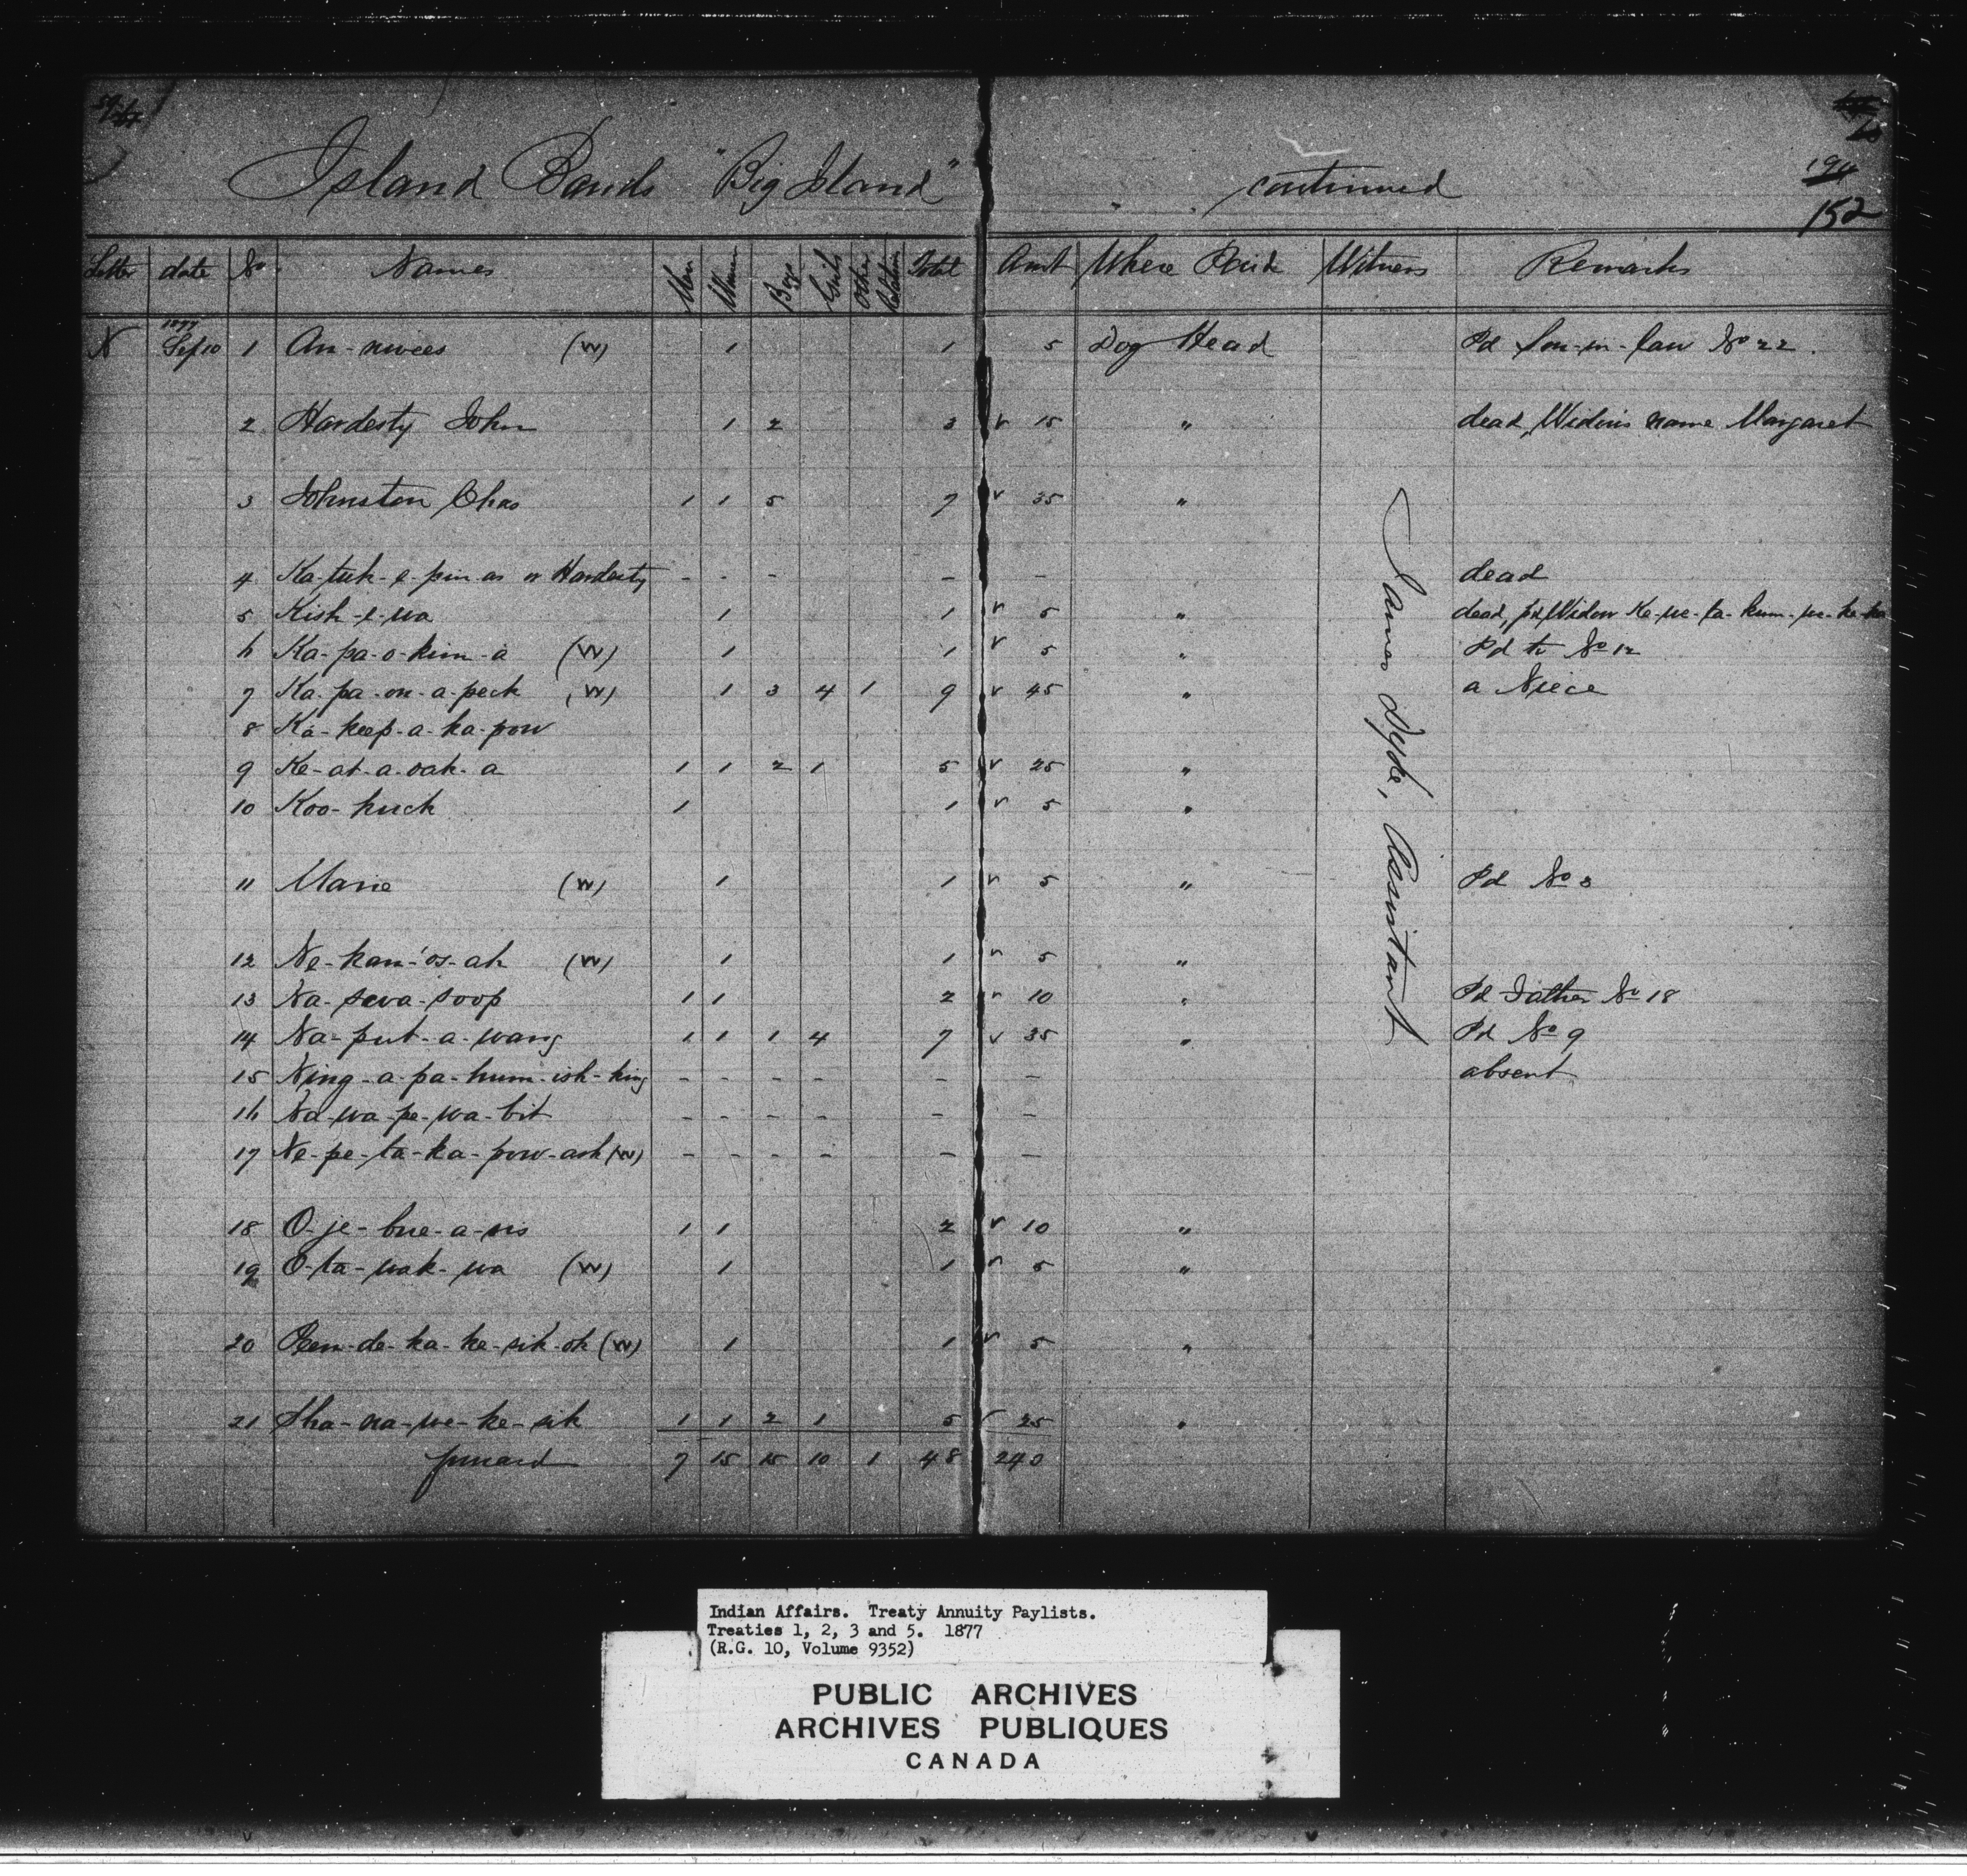 Island Bands "Big Island" continued
152
Letter date No. Names Men Women Boys Girls Other Relations Total Amt Where Paid Witness Remarks
N 1877 Sep 10 1 An-nwees (W) 1 1 5 Dog Head Pd Son-in-law No 22.
2 Hardesty John 1 2 3 v 15 " dead, Widow's name Margaret
3 Johnston Chas 1 1 5 7 v 35 "
4 Ka-tuk-e-pin-as or Hardesty - - - - - dead
5 Kish-e-wa 1 1 v 5 " dead, pd Widow
6 Ka-pa-o-kim-a (W) 1 1 v 5 " Pd to No 12
7 Ka-pa-on-a-peck (W) 1 3 4 1 9 v 45 " a Niece
8 Ka-keep-a-ka-pow
9 Ke-at-a-oak-a 1 1 2 1 5 v 25 "
10 Koo-kuck 1 1 v 5 "
11 Marie (W) 1 1 v 5 " Pd No 3
12 Ne-kan-os-ak (W) 1 1 v 5 "
13 Na-sewa-soop 1 1 2 v 10 " Pd Father No 18
14 Na-put-a-wang 1 1 1 4 7 v 35 " Pd No 9
15 Ning-a-pa-hum-ish-king - - - - - - absent
16 Na-wa-pe-wa-bit - - - - - -
17 Ne-pe-ta-ka-pow-ash (W) - - - - - -
18 O-je-bue-a-sis 1 1 2 v 10 "
19 O-ta-wak-wa (W) 1 1 v 5 "
20 Pem-de-ka-ke-sik-ok (W) 1 1 v 5 "
21 Sha-na-we-ke-sik 1 1 2 1 5 25 "
forward 7 15 15 10 1 48 240
James Dyke, Assistant
Indian Affairs. Treaty Annuity Paylists.
Treaties 1, 2, 3 and 5. 1877
(R.G. 10, Volume 9352)
PUBLIC ARCHIVES
ARCHIVES PUBLIQUES
CANADA